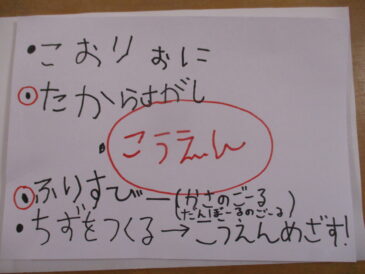 ・こおりおに
・たからさがし
・こうえん
・ふりすびー(かさのごーる
だんぼーるのごーる)
・ちずをつくる→こうえんめざす!